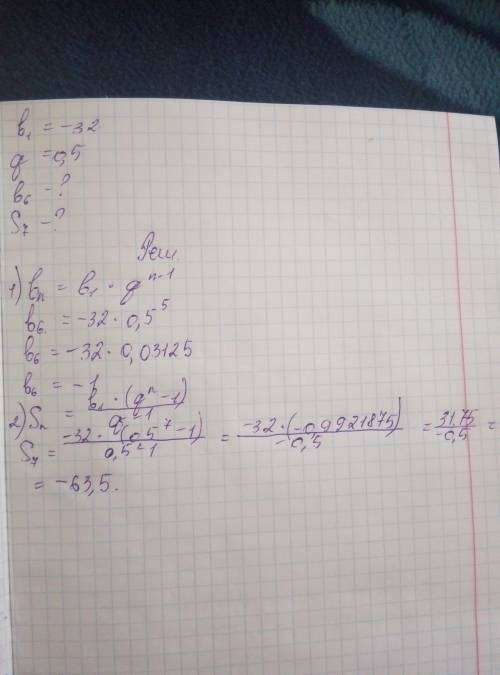 b₁ = -32
q = 0,5
b₆ - ?
S₇ - ?
Реш.
1) bₙ = b₁ · qⁿ⁻¹
b₆ = -32 · 0,5⁵
b₆ = -32 · 0,03125
b₆ = -1
2) Sₙ = b₁ · (qⁿ - 1) / q - 1
S₇ = -32 · (0,5⁷ - 1) / 0,5 - 1 = -32 · (-0,9921875) / -0,5 = 31,75 / -0,5 =
= -63,5.